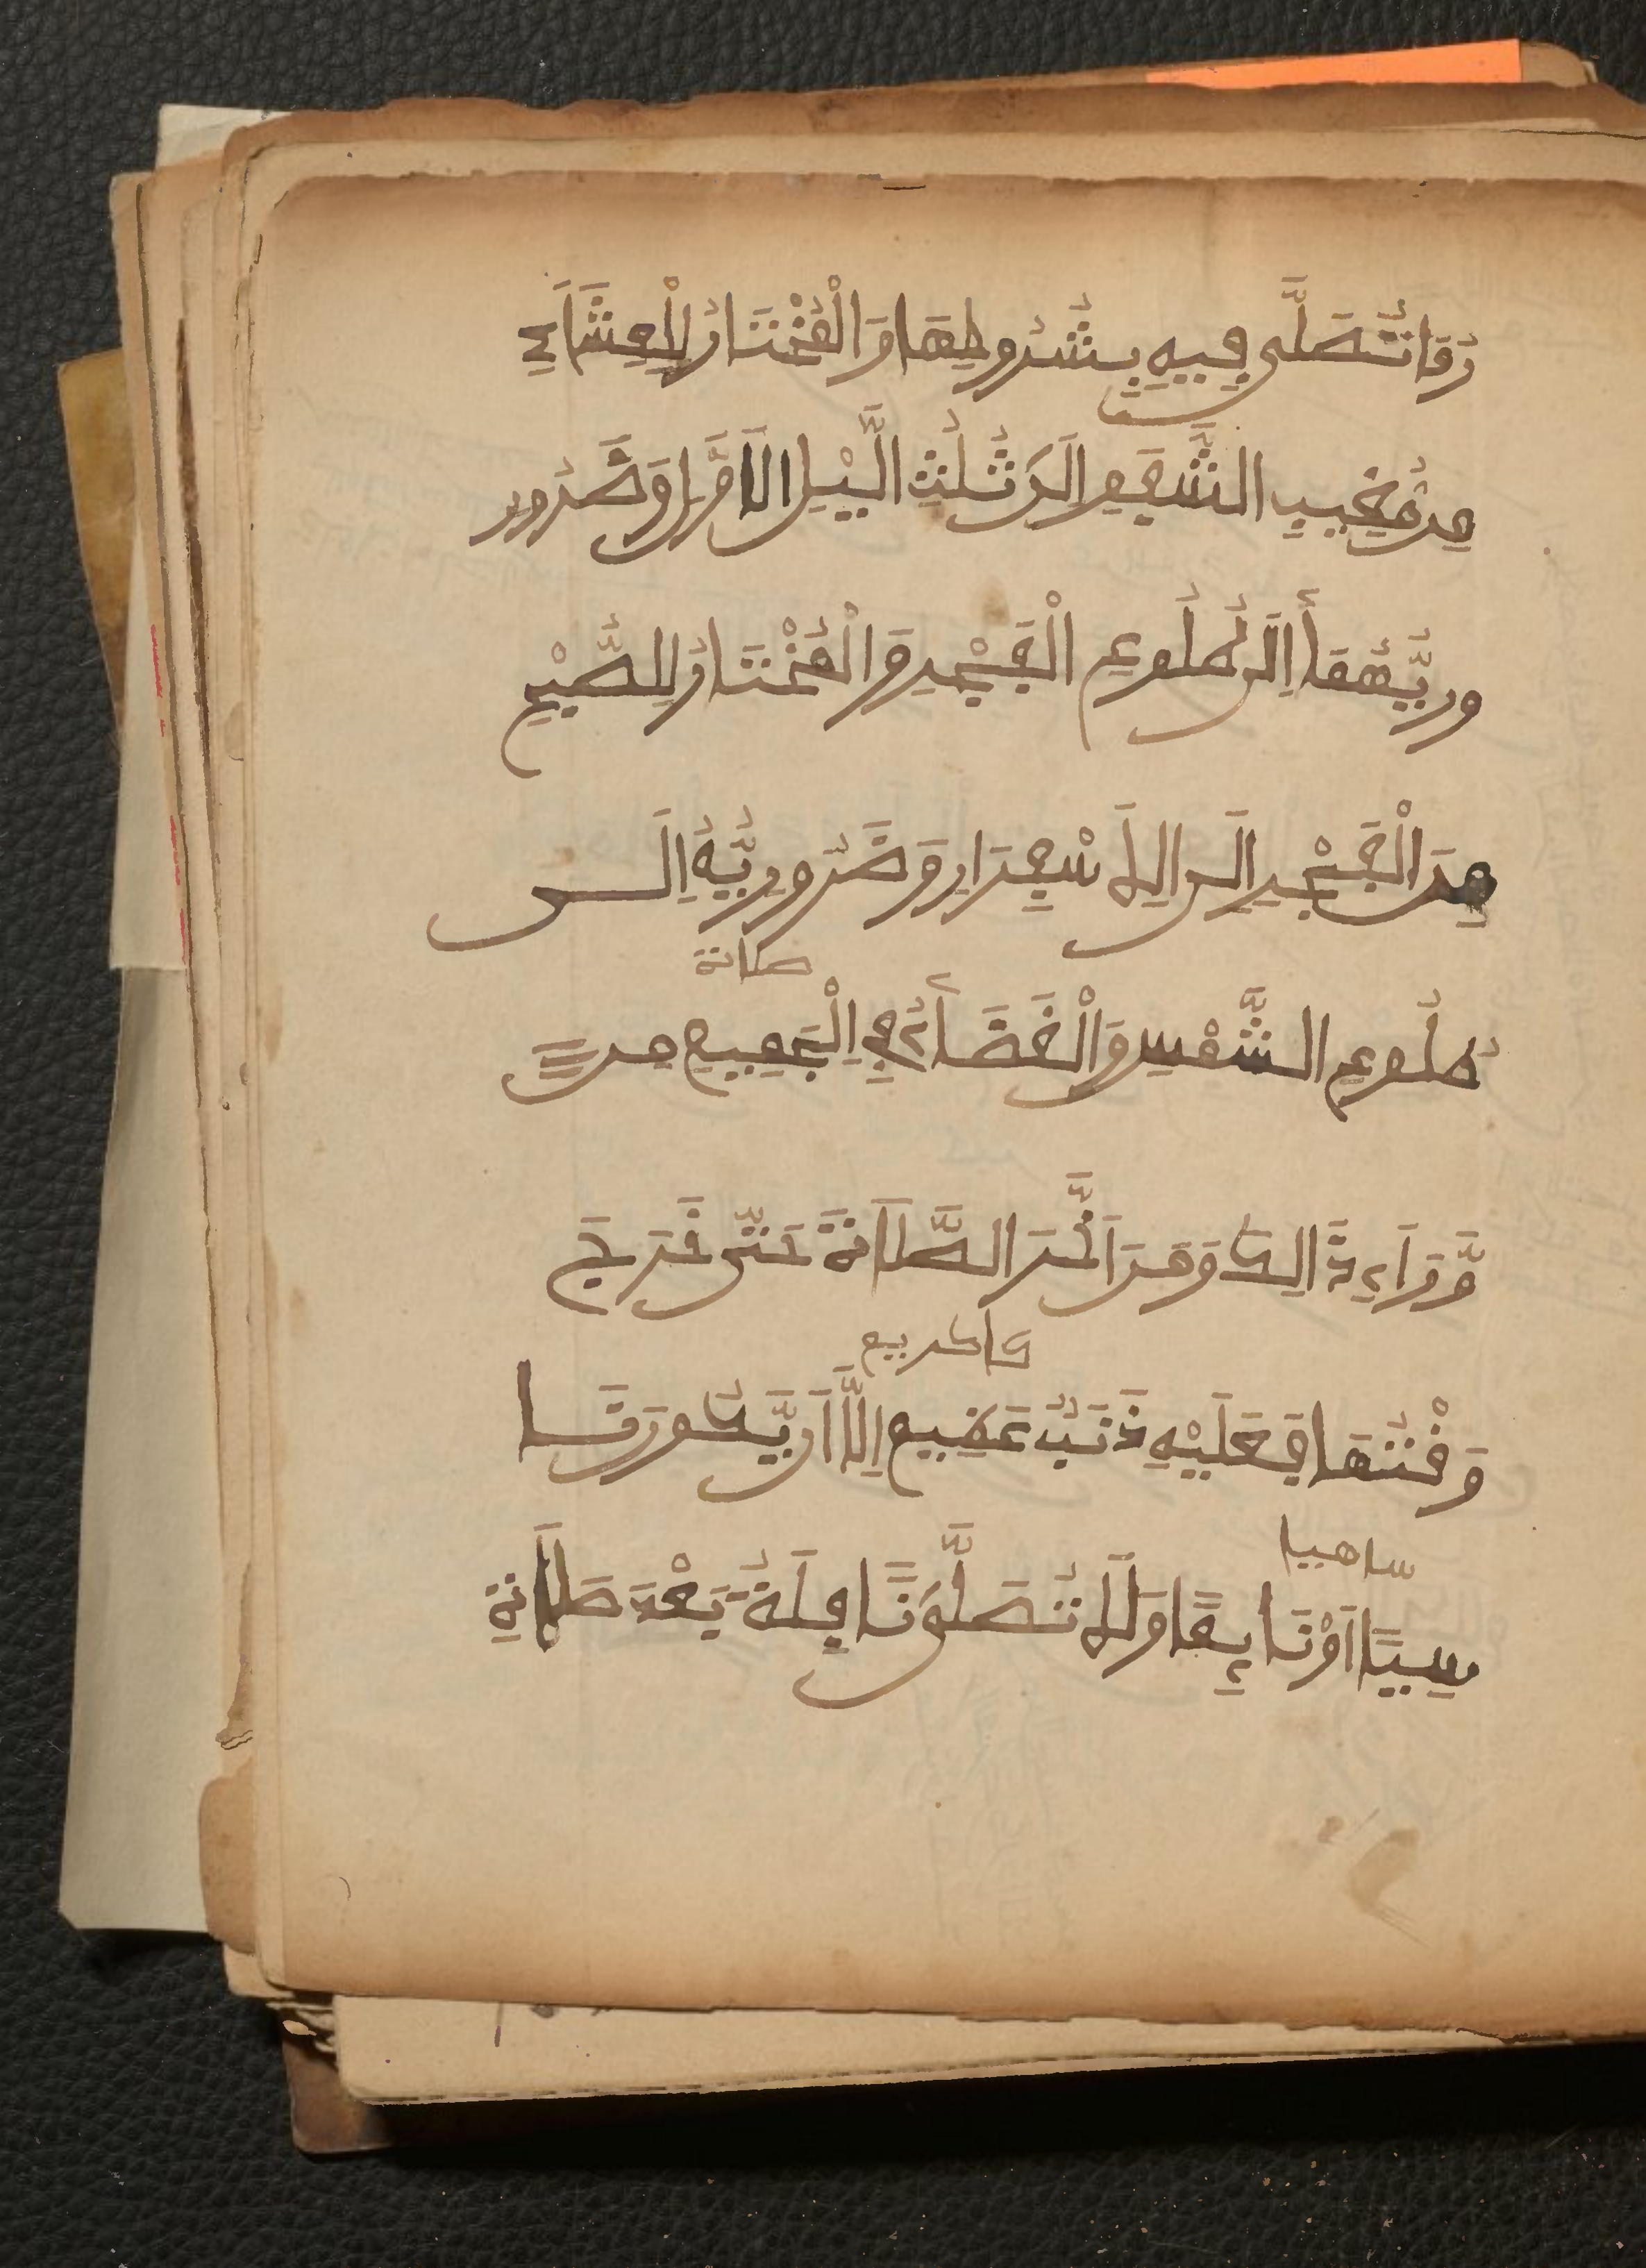 رُمَا تُصَلَّى فِيهِ بِشُرُوطِهَا وَالْمُخْتَارُ لِلْعِشَاءِ
مِن مُغِيبِ الشَّفَقِ إِلَى ثُلُثِ الَّيْلِ الَاوَّلِ وَضَرُور
ورِيُّهُمَا إِلَى طُلُوعِ الْفَجْرِ وَالْمُخْتَارُ لِلصُّبْحِ
مِنَ الْفَجْرِ إِلَى الِاسْفِرَارِ وَضَرُورِيُّهُ إِلَى
صلاة
طُلُوعِ الشَّمْسِ وَالْقَضَاءُ فِي الْجَمِيعِ مِن
وَّرَاءِ ذَالِكَ وَمَنَ اَخَّرَ الصَّلَاةَ حَتَّى خَرَجَ
وَقْتُهَا فَعَلَيْهِ ذَنْبٌ عَظِيمٌ إِلَّا أَن يَّكُونَ نَا
ساهيا
سِيًا اَوْ نَايِمًا وَلَا تُصَلَّى نَافِلَةٌ بَعْدَ صَلَاةِ